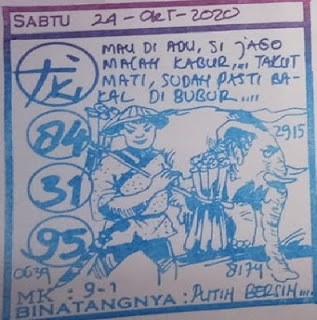 SABTU 24-OKT-2020
MAU DI ADU, SI JAGO
MALAH KABUR,,, TAKUT
MATI, SUDAH PASTI BA-
KAL DI BUBUR....
84
2915
31
95
0639
8174
MK : 9-1
BINATANGNYA : PUTIH BERSIH....